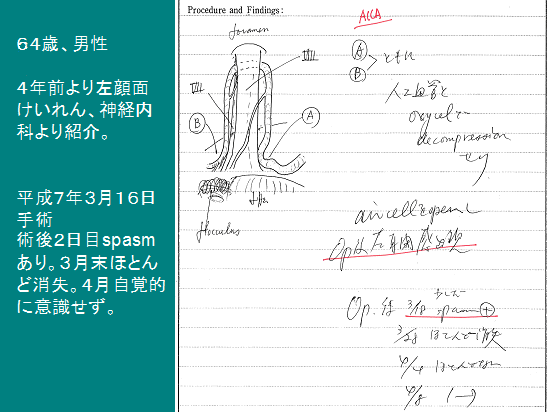 64歳、男性
4年前より左顔面
けいれん、神経内
科より紹介。
平成7年3月16日
手術
術後2日目spasm
あり。3月末ほとん
ど消失。4月自覚的
に意識せず。
Procedure and Findings:
AICA
foramen
VIII
VII
A
B
flocculus
A
B
ともに
人工血管と
oxycelで
decompression
せり
air cellをopenし
Op後左耳閉感
Op.後 3/18 spasm +
3/28 ほとんど消失
4/4 ほとんどなし
4/8 (-)